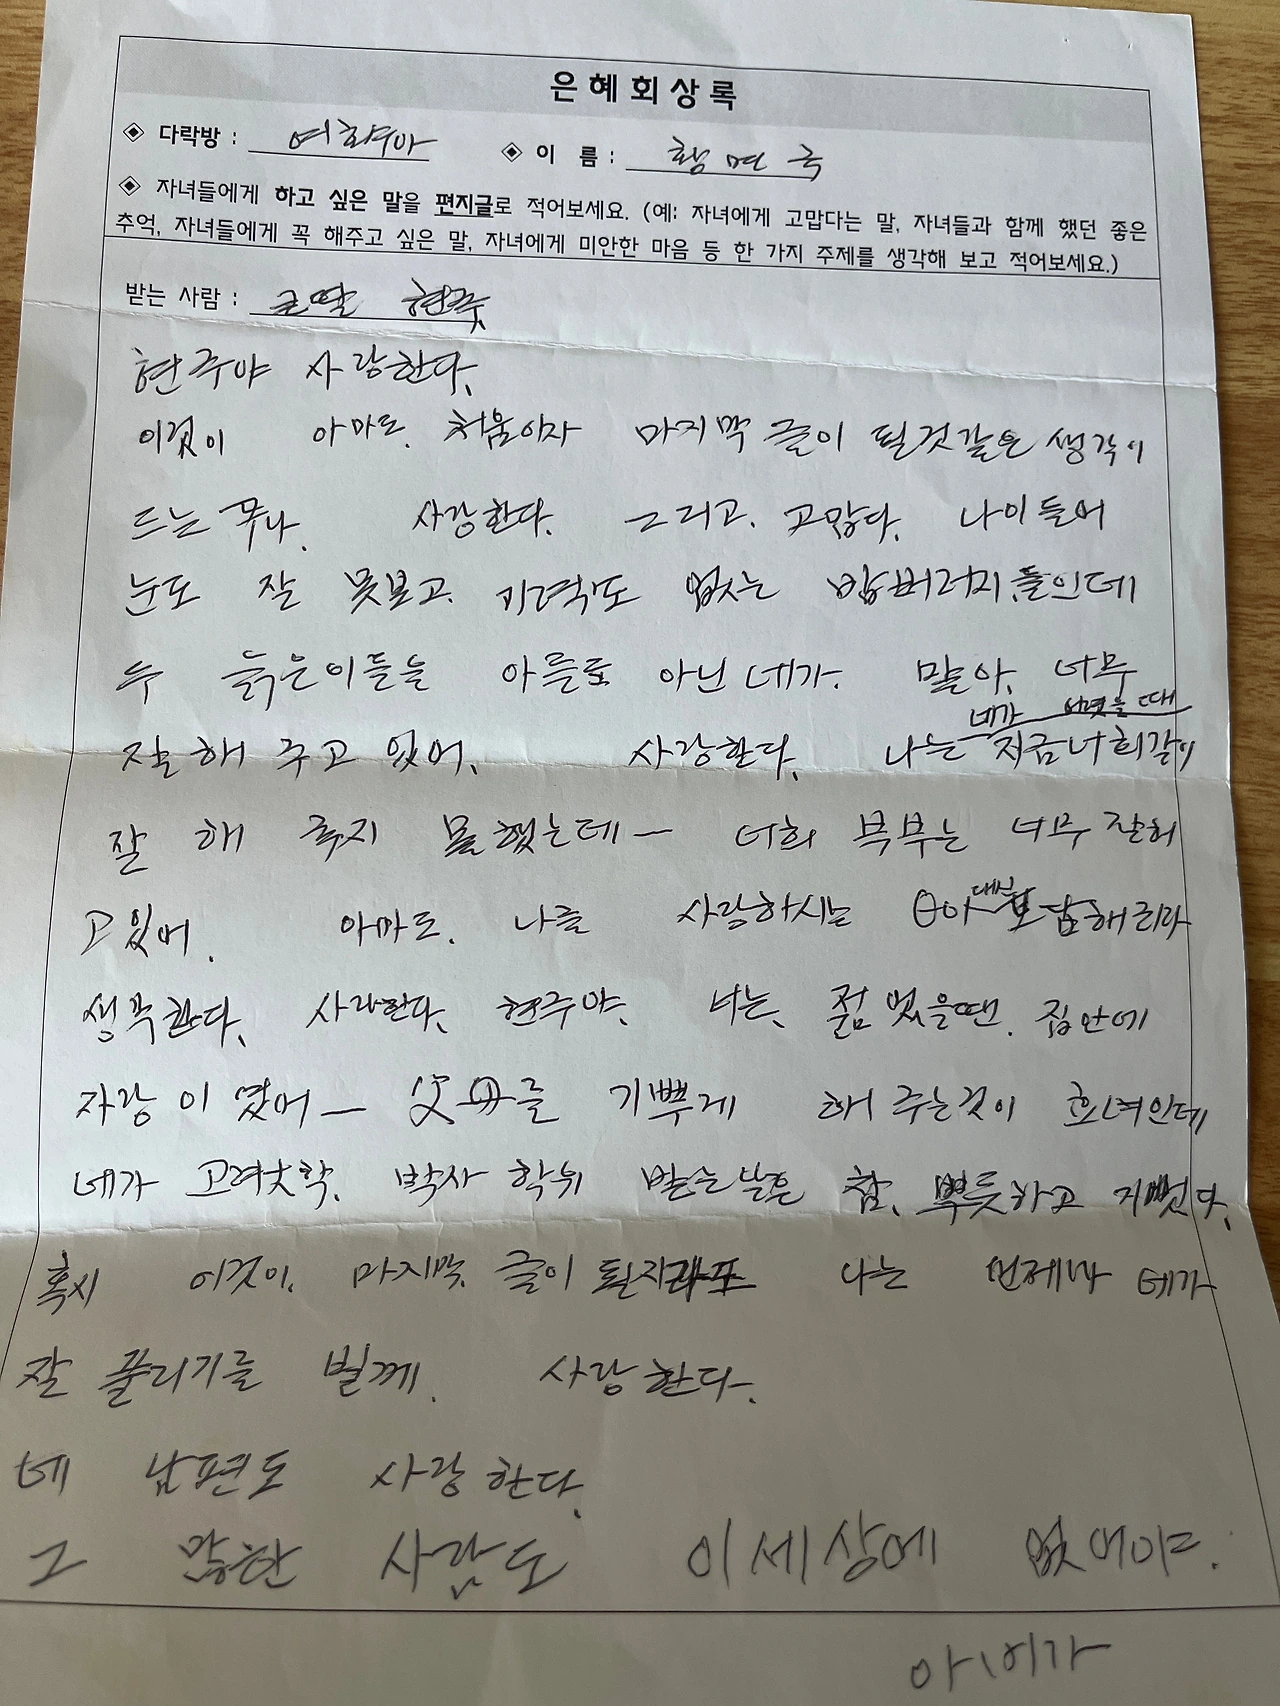 은혜회상록
◈ 다락방 : 여향아 ◈ 이 름 :
◈ 자녀들에게 하고 싶은 말을 편지글로 적어보세요. (예: 자녀에게 고맙다는 말, 자녀들과 함께 했던 좋은
추억, 자녀들에게 꼭 해주고 싶은 말, 자녀에게 미안한 마음 등 한 가지 주제를 생각해 보고 적어보세요.)
받는 사람 : 큰딸 현주
현주야 사랑한다.
이것이 아마도. 처음이자 마지막 글이 될것같은 생각이
드는구나. 사랑한다. 그리고. 고맙다. 나이들어
눈도 잘 못보고. 기력도 없는 밥버러지.들인데
두 늙은이들을 아들도 아닌 네가. 말아. 너무
네가 어렸을 때
잘해 주고 있어. 사랑한다. 나는 지금너희같이
잘 해 주지 못했는데ㅡ 너희 부부는 너무 잘하
고있어. 아마도. 나를 사랑하시는 대신 보답해리라
생각한다. 사랑한다. 현주야. 너는. 젊었을땐. 집안에
자랑이였어ㅡ 父母를 기쁘게 해주는것이 효녀인데
네가 고려大학. 박사 학위 받는날은 참. 뿌듯하고 기뻤다.
혹시 이것이. 마지막. 글이 될지라도 나는 언제나 네가
잘 풀리기를 빌께. 사랑한다.
네 남편도 사랑한다.
그 만한 사람도 이세상에 없어야.
아버가